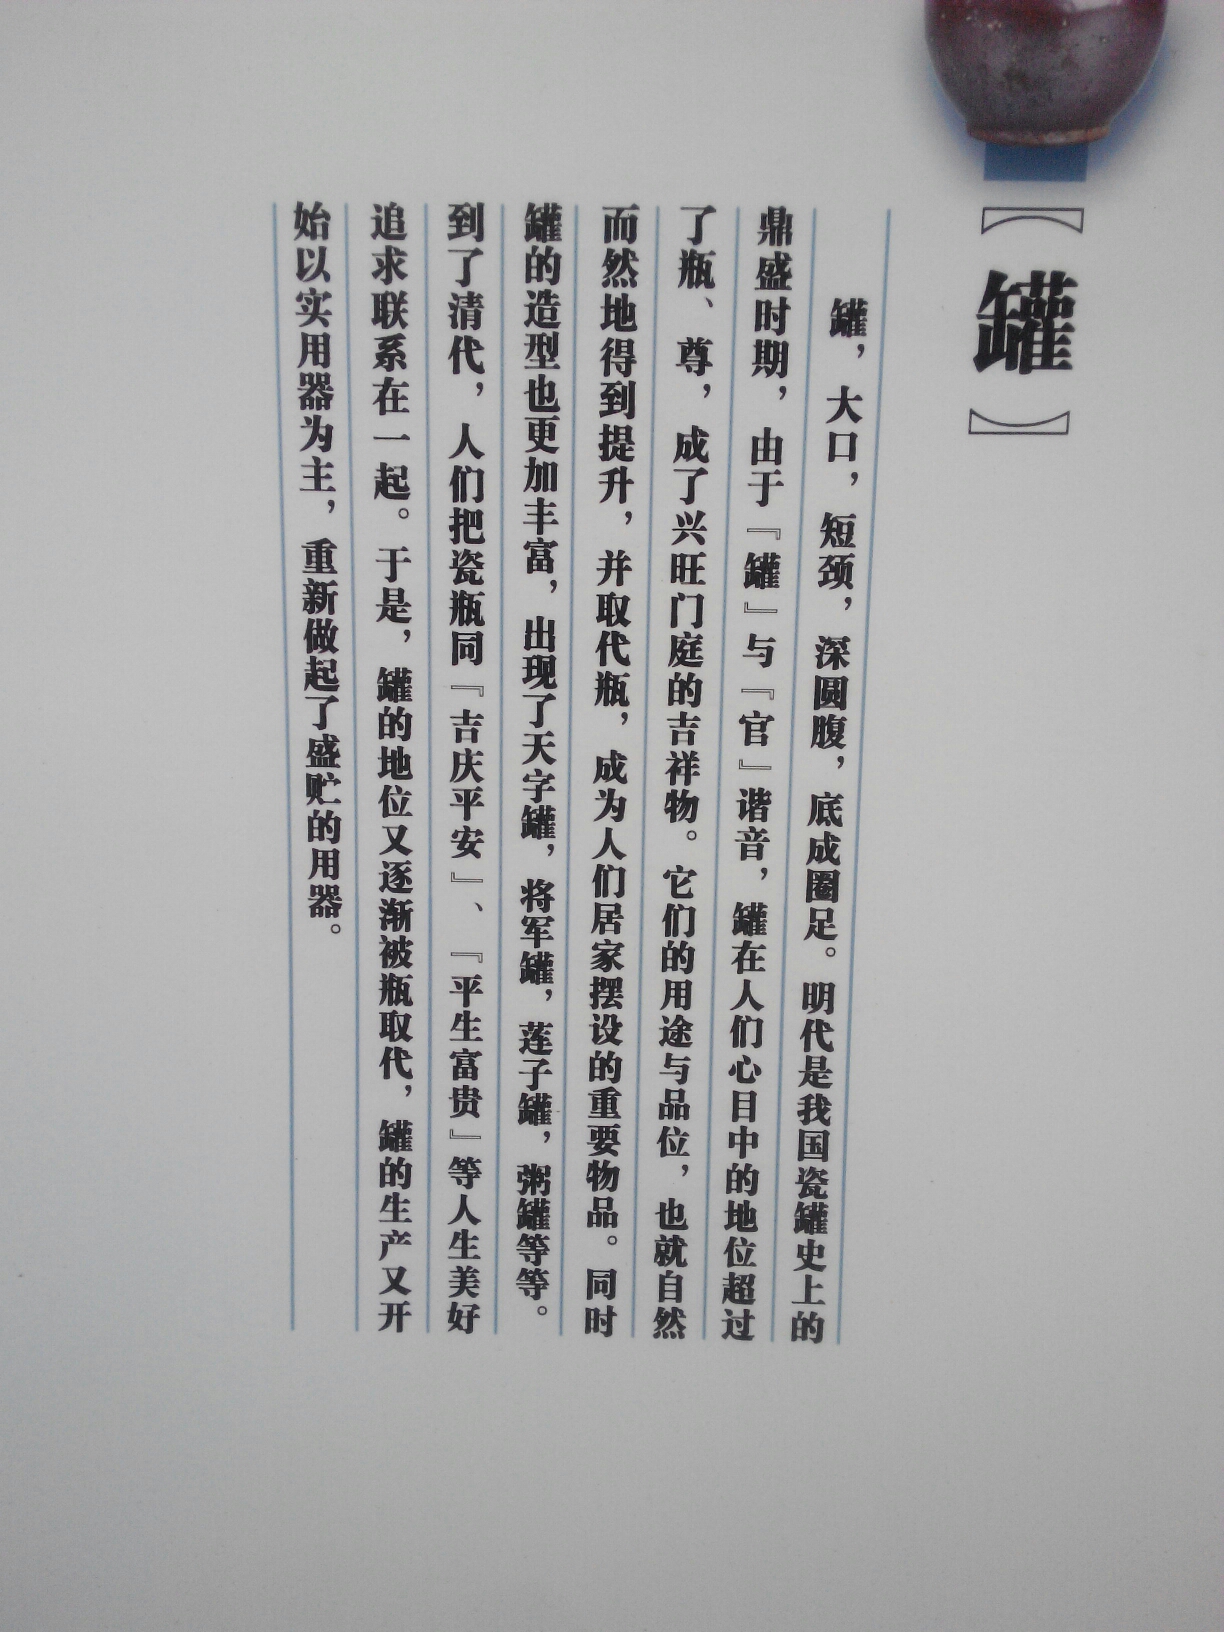 【罐】
罐，大口，短颈，深圆腹，底成圈足。明代是我国瓷罐史上的
鼎盛时期，由于『罐』与『官』谐音，罐在人们心目中的地位超过
了瓶、尊，成了兴旺门庭的吉祥物。它们的用途与品位，也就自然
而然地得到提升，并取代瓶，成为人们居家摆设的重要物品。同时
罐的造型也更加丰富，出现了天字罐，将军罐，莲子罐，粥罐等等。
到了清代，人们把瓷瓶同『吉庆平安』、『平生富贵』等人生美好
追求联系在一起。于是，罐的地位又逐渐被瓶取代，罐的生产又开
始以实用器为主，重新做起了盛贮的用器。